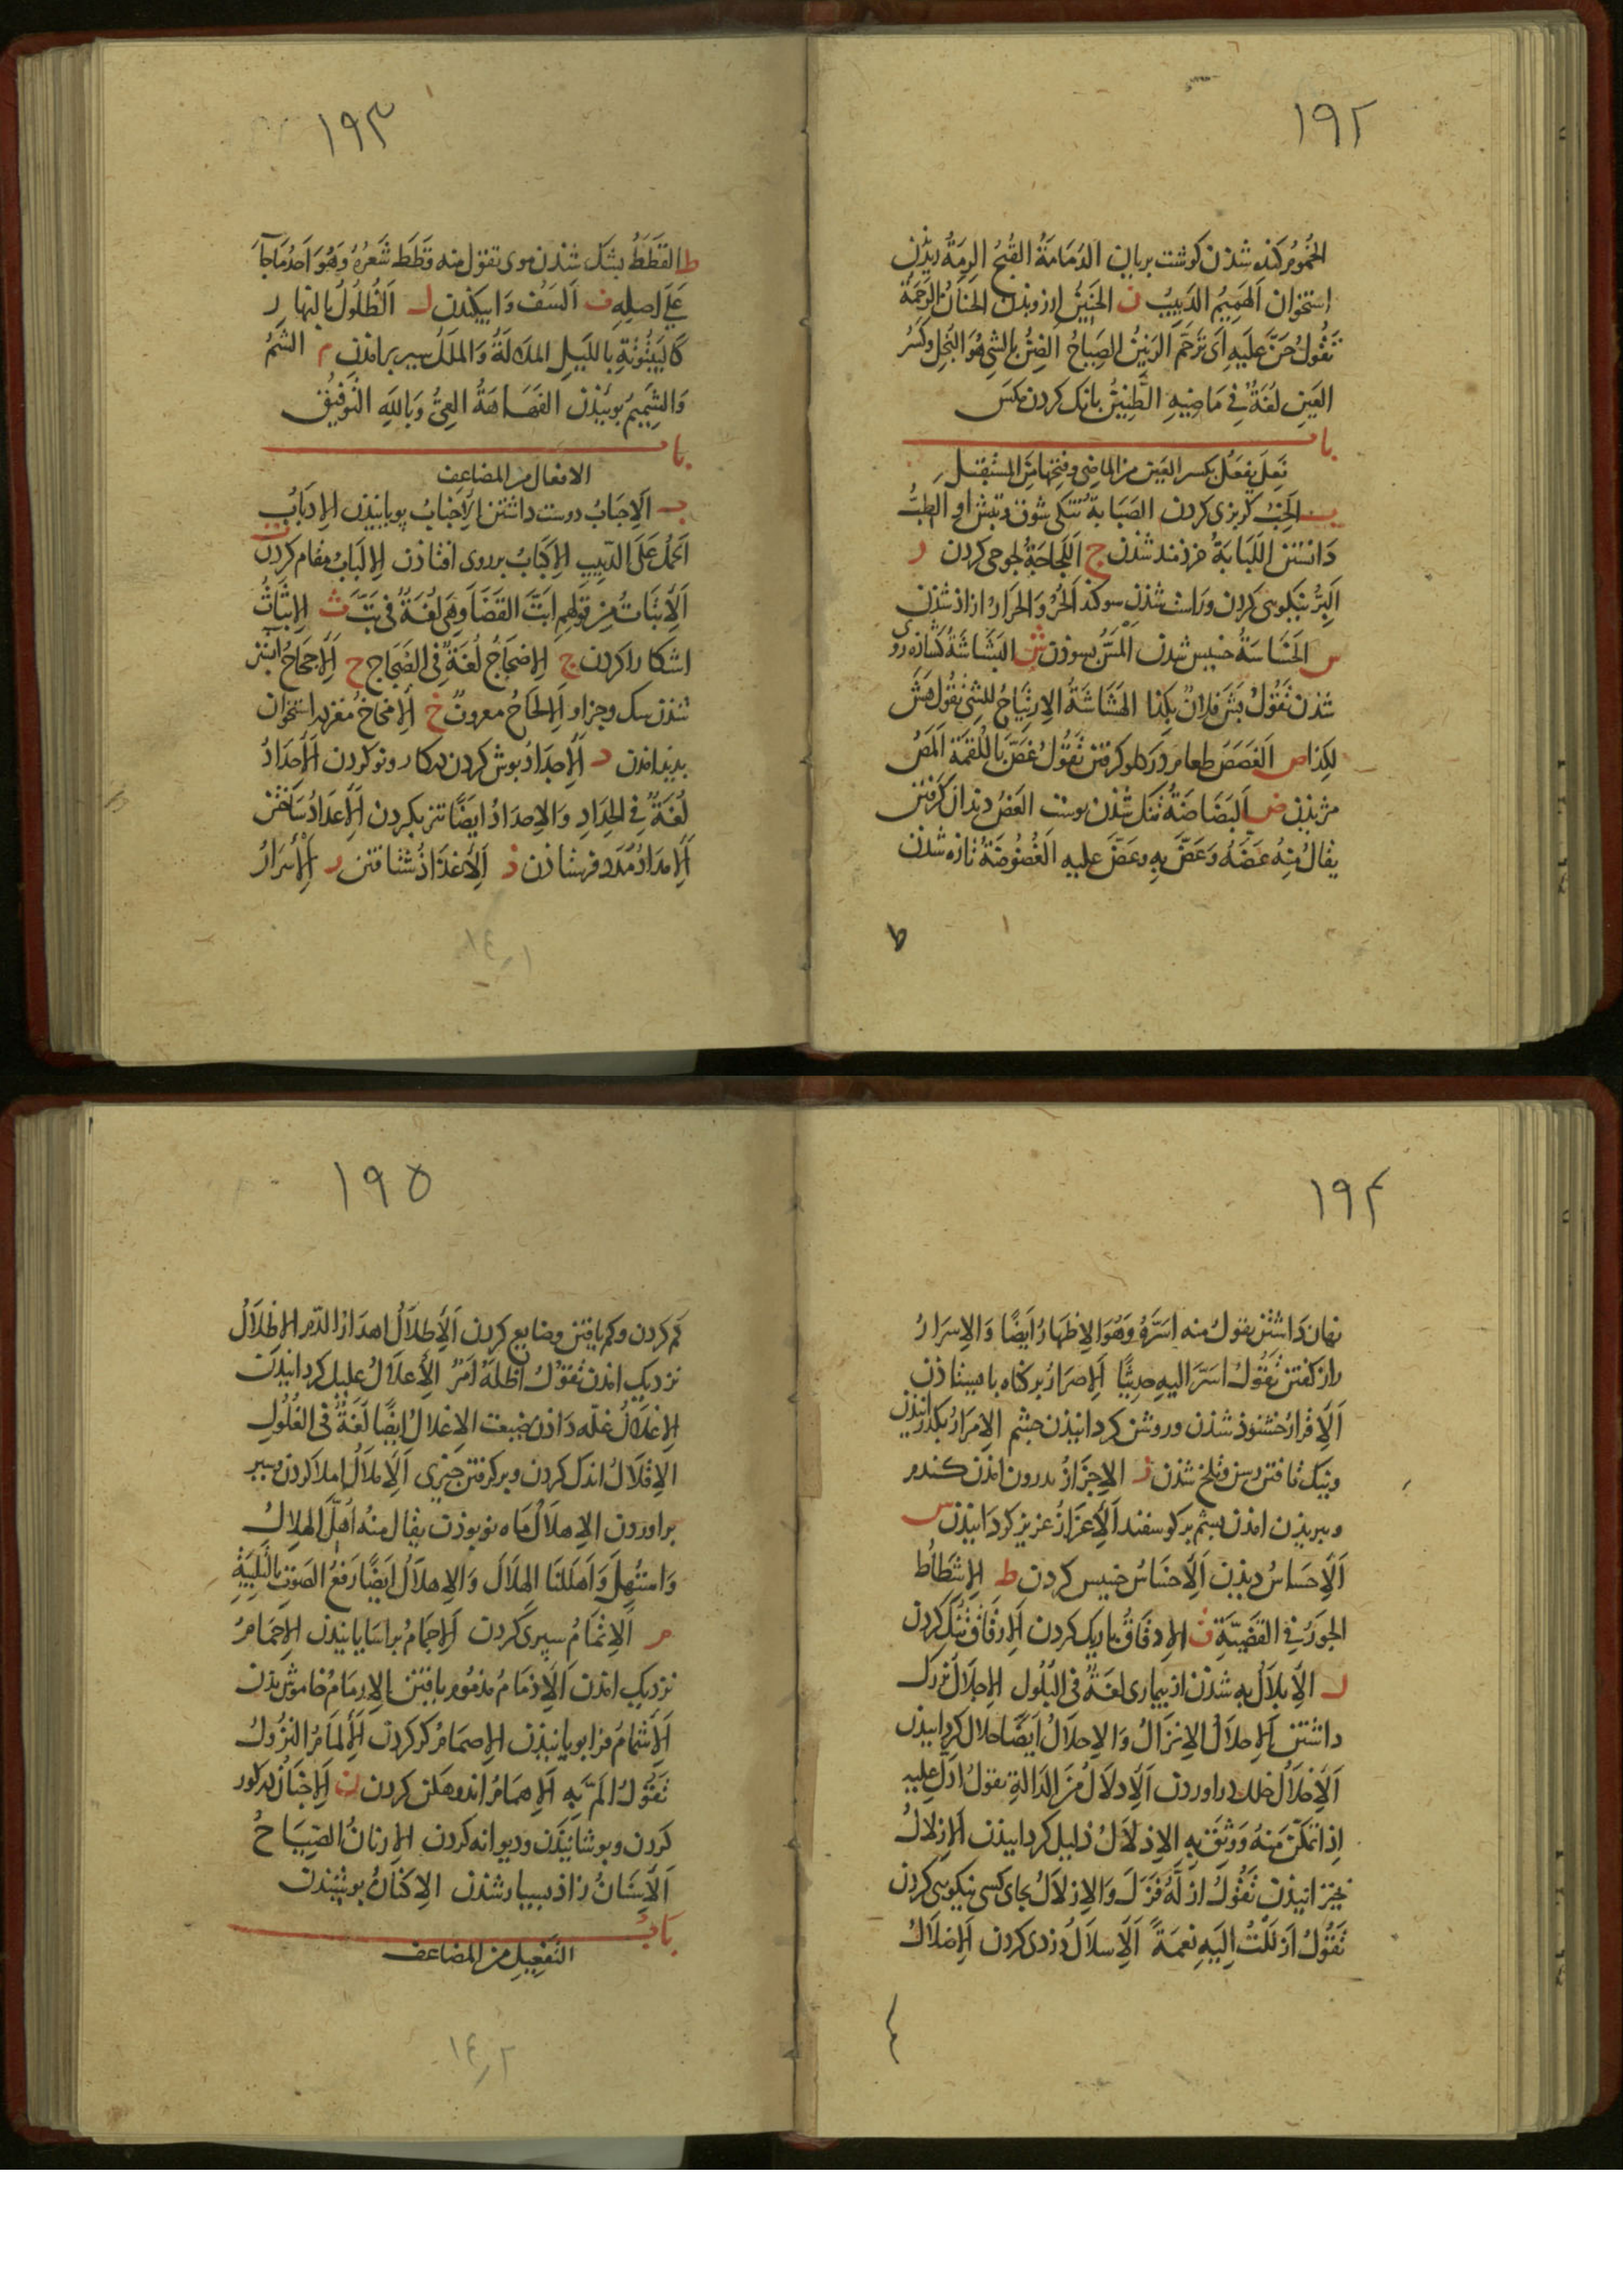 ١٩٢
الخُمُومُ كنده شدن كوشت بريان الدَمَامَةُ القُبحُ الرِمَةُ ريذن
استخوان الهَمِيمُ الدَبِيبُ ن الحَنِينُ ارزومند الحَنَانُ الرَحمَة
تَقُولُ حَنَّ عَلَيهِ اَى تَرَحَّمَ الرَنِينُ الصِيَاحُ الضِنُّ بالشىِ هُوَ البُخلُ وكَسرُ
العَينِ لُغَةٌ فى مَاضِيهِ الطَّنِينُ بانك كردن مكس
باب
فَعِلَ يَفعَلُ بكسر العَين من الماضِى وفتحها من المُستَقبل
ب الخِبُّ كربزى كردن الصَبَابَةُ تنكى شوق وتبش او الطِبُّ
دَانستن اللَبَابَةُ خردمند شدن ج اللَجَاجَةُ لجوجى كردن ر
البِرُّ نيكويى كردن وراست شدن سوكند الحُرُّ وَالحَرَارُ ازاذ شدن
س الخَسَاسَةُ خسيس شدن المَسُّ بسوذن ش البَشَاشَةُ كشاذه روى
شدن تَقُولُ بَشَّ فلانٌ بكذا الهَشَاشَةُ الاِرتِيَاحُ للشئ تقُولُ هَشَّ
لِكذا ص الغَصَصُ طعام در كلو كرفتن تَقُولُ غَصَّ بِاللُقمَة المَصُّ
مزيدن ض البَضَاضَةُ تنك شدن بوست العَضُّ دندان كرفتن
يقالُ مِنهُ عَضَهُ وَعَضَّ بِهِ وعَضَّ عليهِ الغُضُوضَةُ تازه شدن
ط
١٩٣
ط القَطَطُ بشك شدن موى تقول منه قَطِطَ شَعرُهُ وَهُوَ اَحَدُ مَا جَاَ
عَلى اَصلِهِ ف السَفُّ وَابيكندن ل الظُلُولُ بالنهار
كالبَيتُوتَةِ بالليلِ المَلَالَةُ وَالمَلَلُ سير برامدن م الشَمُّ
وَالشَمِيمُ بوييذن الفَهَاهَةُ العِىُّ وَبِاللهِ التَوفِيقُ
باب
الافعال من المضاعف
ب الاِحبَابُ دوست داشتن الاِخبَابُ بويانيذن الاِدبَابُ
الحَملُ عَلَى الدَبِيبِ الاِكبَابُ بروى افتاذن الاِلبَابُ مقام كردن
ت الاِبتَاتُ مِن قَولِهِم اَبَتَّ القَضَاَ وَهِىَ لُغَةٌ فى بَتَّ ث الاِبثَاثُ
اشكارا كردن ج الاِضجَاجُ لُغَةٌ فى الضَجَاج ح الاِجحَاحُ ابستن
شدن سك وجز او الاِلحَاحُ معروف خ الاِمخَاخُ مغز در استخوان
بديد امدن د الاِجدَادُ بوش كردن در كار ونو كردن الاِحدَادُ
لُغَةٌ فى الحِدَادِ وَالاِحدَادُ اَيضًا تيز بكردن الاِعدَادُ ساختن
الاِمدَادُ مَدَد فرستاذن ذ الاِغذَاذُ شتافتن ر الاِسرَارُ
١٤١
١٩٤
نهان دَاشتن يقولُ منه اَسَرَّهُ وَهُوَ الاِظهَارُ اَيضًا وَالاِسرَارُ
راز كفتن تَقُولُ اَسَرَّ اليهِ حديثًا الاِصرَارُ بر كناه باميستاذن
الاِقرَارُ خشنوذ شدن وروشن كردانيذن جشم الاِمرَارُ بكذرانيذن
ونيك تافتن رسن وتلخ شدن ز الاِجزَازُ بدرون امذن كندم
وببريذن امذن بشم بر كوسفند الاِعزَازُ عزيز كردَانيذن س
الاِحسَاسُ ديذن الاِخسَاسُ خسيس كردن ط الاِشطَاطُ
الجَورُ فى القَضِيَّةِ ق الاِدقَاقُ باريك كردن الاِرقَاقُ تُنُك كردن
ل الاِبلَالُ به شدن از بيمارى لغَةٌ فى البُلُول الاِجلَالُ بزرك
داشتن الاِحلَالُ الاِنزَالُ وَالاِحلَالُ اَيضًا حلال كردانيذن
الاِخلَالُ خلل دراوردن الاِدلَالُ مِنَ الدَالةِ تقولُ اَدَلَّ عليهِ
اِذا تَمَكَّنَ مِنهُ وَوَثِقَ بِهِ الاِذلَالُ ذليل كردانيذن الاِزلَالُ
بخيزانيذن تَقُولُ اَزَلَّهُ فَزَلَّ وَالاِزلَالُ بجاى كسى نيكويى كردن
تَقُولُ اَزلَلتُ اِلَيهِ نِعمَةً الاِسلَالُ دزدى كردن الاِضلَالُ
١٩٥
كم كردن وكم يافتن وضايع كردن الاِطلَالُ اهدَار الدَم الاِظلَالُ
نزديك امذن تَقُولُ اَظَلَّهُ اَمرٌ الاِعلَالُ عليل كردانيذن
الاِغلَالُ غلّه دَاذن ضيعت الاِغلالُ ايضًا لُغَةٌ فى الغُلُولِ
الاِقلَالُ اندك كردن وبر كرفتن جيزى الاِملَالُ املا كردن وسير
براوردن الاِهلَالُ مَاه نو بوذن يقال مِنهُ اُهِلَّ الهِلالُ
وَاستُهِلَّ وَاَهلَلنَا الهِلَالَ وَالاِهلَالُ اَيضًا رَفعُ الصَوتِ بالتَلبِيَةِ
م الاِتمَامُ سپرى كردن الاِجمَامُ براسَايانيذن الاِحمَامُ
نزديك امذن الاِذمَامُ مذمُوم يافتن الاِرمَامُ خاموش بذن
الاِشمَامُ فرا بويانيذن الاِصمَامُ كر كردن الاِلمَامُ النزُولُ
تَقُولُ اَلَمَّ بِهِ الاِهمَامُ اندوهكن كردن ن الاِجنَانُ در كور
كردن وبوشانيذن وديوانه كردن الاِرنَانُ الصِيَاحُ
الاِسنَانُ زاذ بسيار شدن الاِكنَانُ بوشيذن
بَابُ
التَفعِيلِ من المضاعف
١٤٢